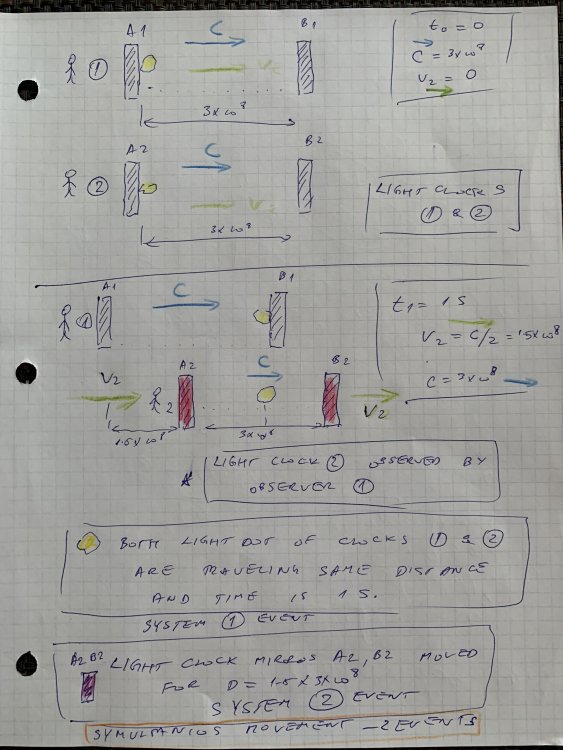 A1
B1
t₀ = 0
C
C = 3×10⁸
①
V₂
V₂ = 0
3×10⁸
A2
B2
C
②
V₂
LIGHT CLOCKS
① & ②
3×10⁸
A1
B1
C
t₁ = 1S
①
V₂ = C/2 = 1.5×10⁸
A2
C
B2
C = 3×10⁸
V₂
2
V₂
1.5×10⁸
3×10⁸
LIGHT CLOCK ② OBSERVED BY
OBSERVER ①
BOTH LIGHT DOT OF CLOCKS ① & ②
ARE TRAVELING SAME DISTANCE
AND TIME IS 1 S.
SYSTEM ① EVENT
A2 B2 LIGHT CLOCK MIRROS A2, B2 MOVED
FOR D = 1.5 × 3×10⁸
SYSTEM ② EVENT
SYMULTANIOS MOVEMENT – 2 EVENTS